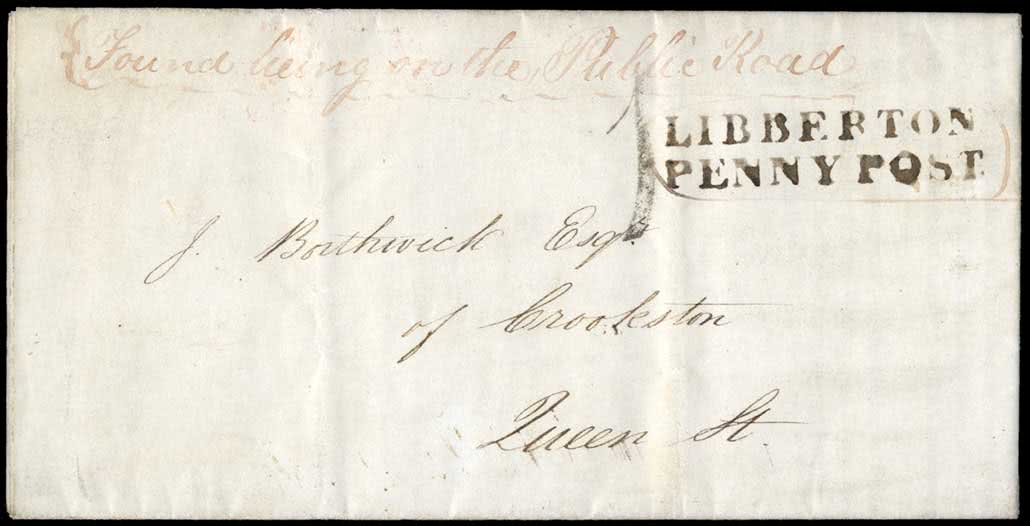 Found lieing on the Public Road
LIBBERTON
PENNY POST
J. Borthwick Esqr
of Crookston
Queen St.